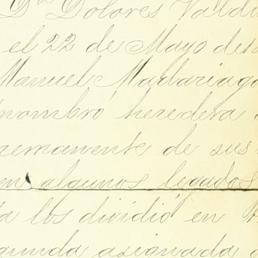 Da Dolores Valdi
el 22 de Mayo des
Manuel Madariaga
nombró heredera
remanente de sus
en algunos legados
ta los dividió en
gunda asignada a